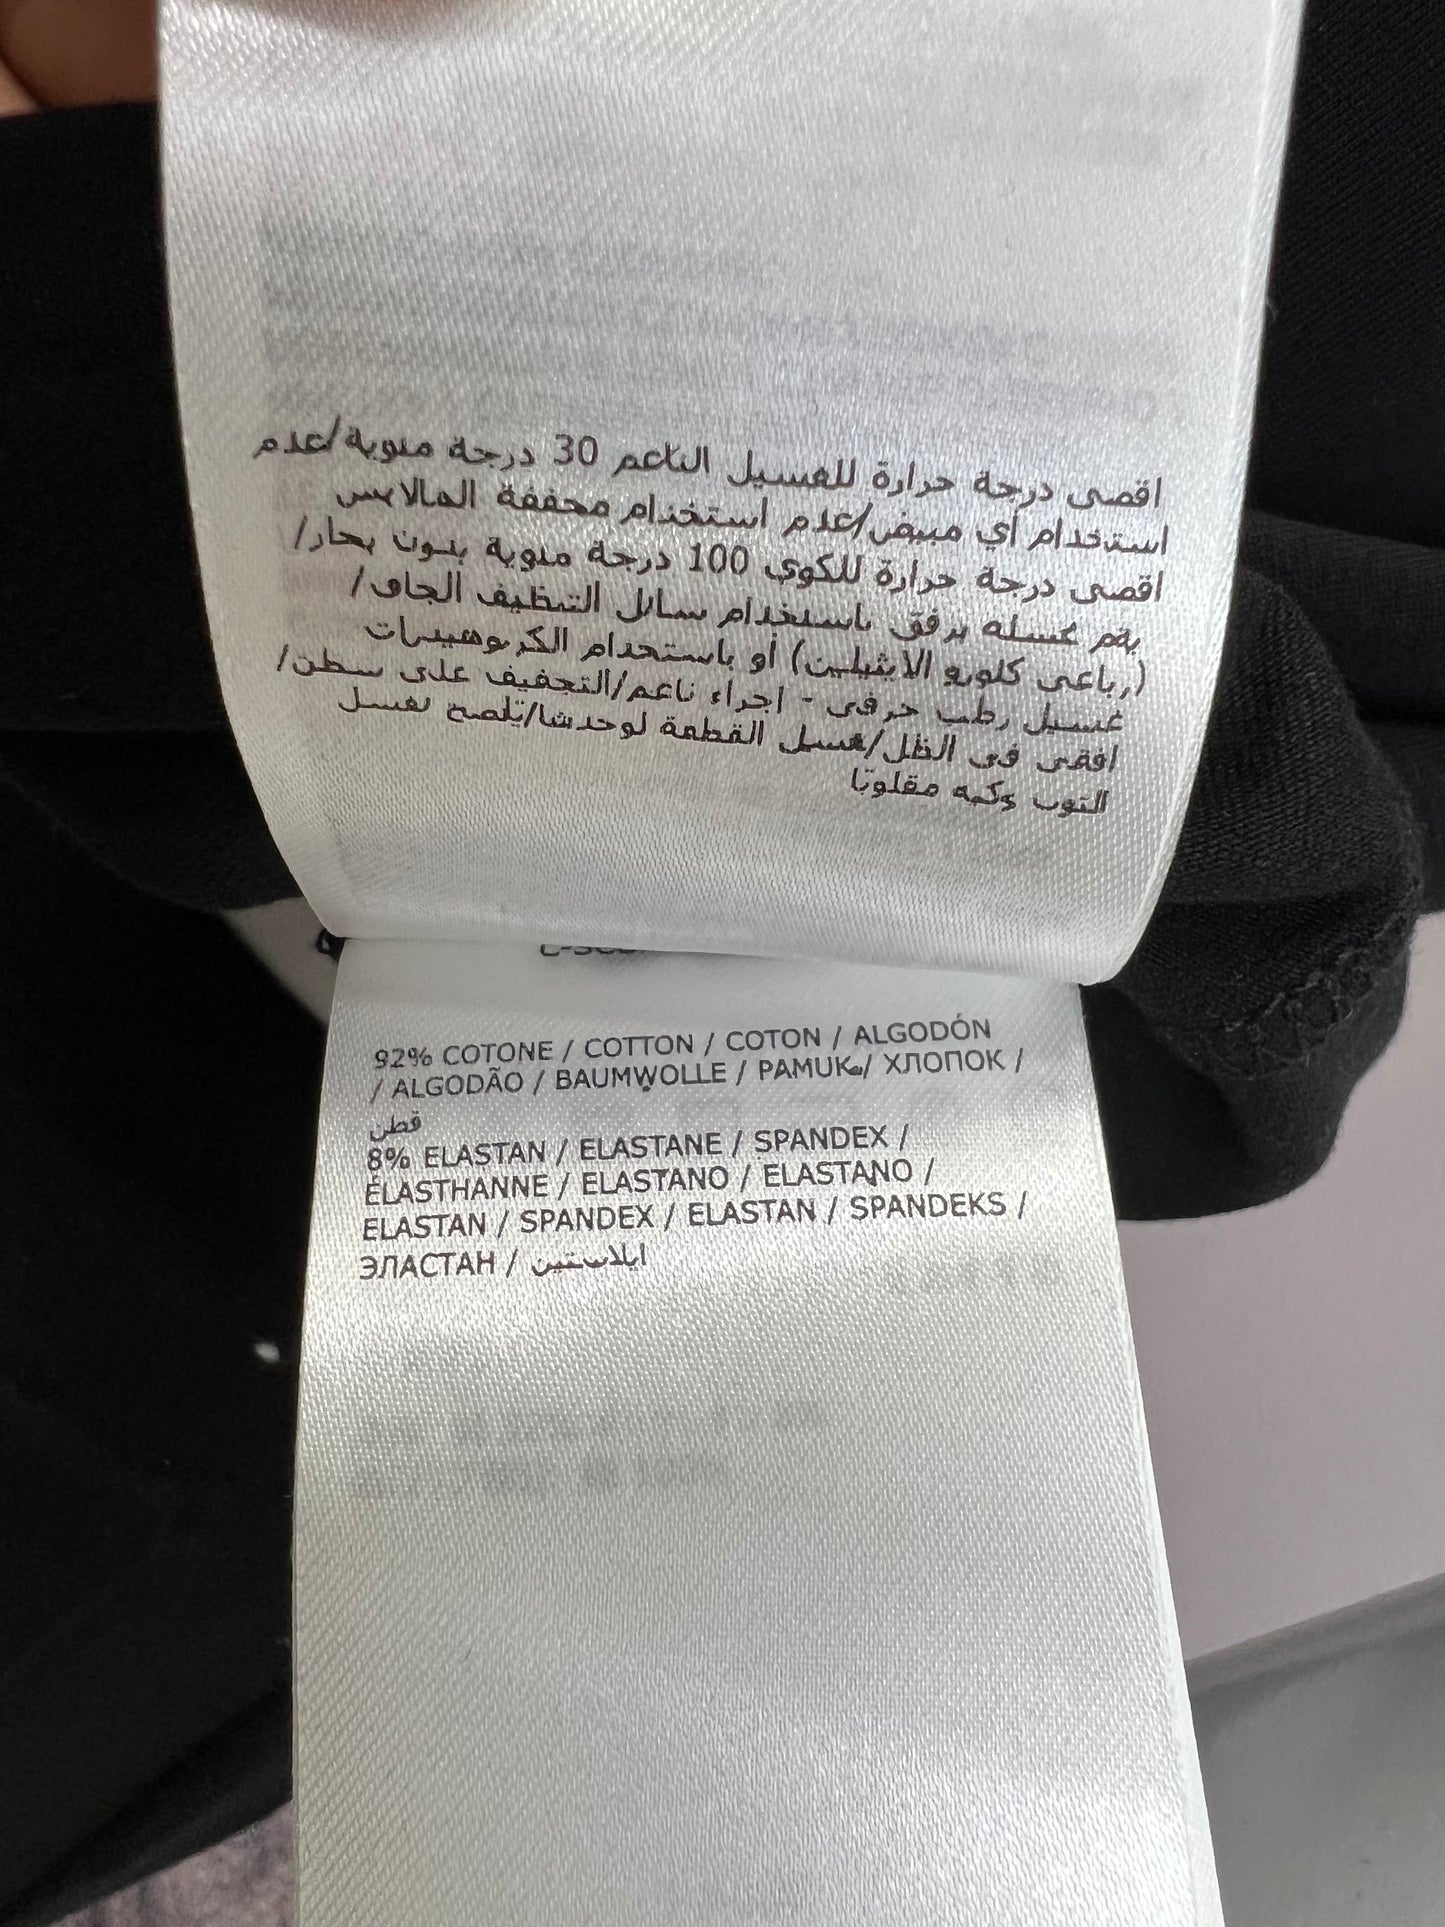 اقصى درجة حرارة للغسيل الناعم 30 درجة مئوية/عدم
استخدام أي مبيض/عدم استخدام مجففة المالابس
اقصى درجة حرارة للكوي 100 درجة مئوية بدون بخار/
يتم غسله برفق باستخدام سائل التنظيف الجاف/
(رباعي كلورو الايثيلين) أو باستخدام
غسيل رطب حرفي - اجراء ناعم/التجفيف على سطن/
افقي في الظل/غسيل القطعة لوحدها/
مقلوبًا
92% COTONE / COTTON / COTON / ALGODÓN
/ ALGODÃO / BAUMWOLLE / PAMUK / ХЛОПОК /
قطن
8% ELASTAN / ELASTANE / SPANDEX /
ÉLASTHANNE / ELASTANO / ELASTANO /
ELASTAN / SPANDEX / ELASTAN / SPANDEKS /
ЭЛАСТАН / ايلاستين